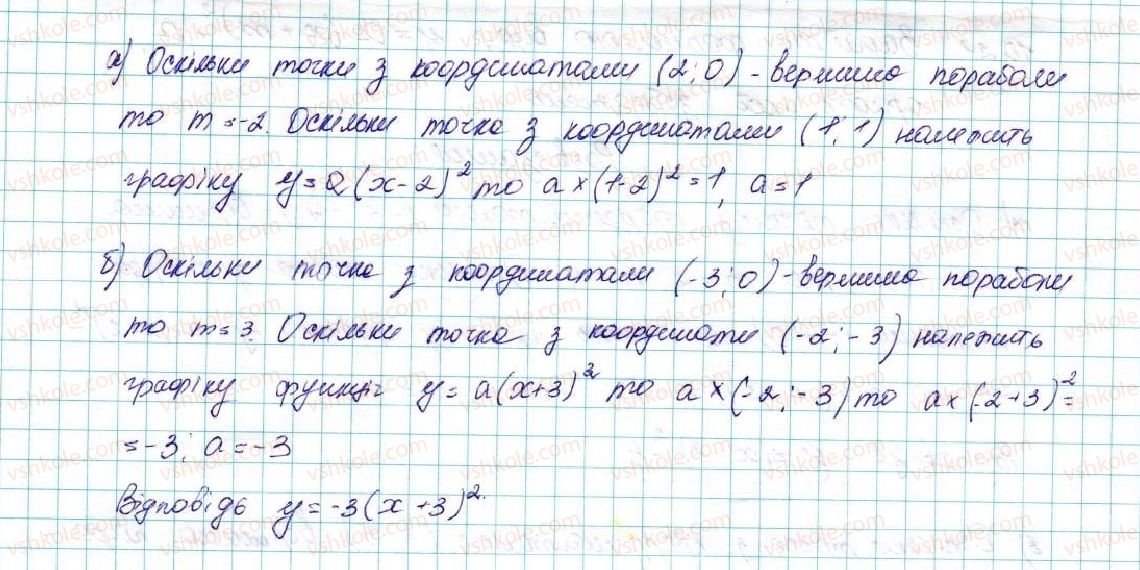 а) Оскільки точки з координатами (2; 0) - вершина параболи
то m = -2. Оскільки точка з координатами (1; 1) належить
графіку y = a(x - 2)² то a × (1-2)² = 1, a = 1
б) Оскільки точка з координатами (-3; 0) - вершина параболи
то m = 3. Оскільки точка з координати (-2; -3) належить
графіку функції y = a(x+3)² то a × (-2; -3) то a × (-2+3)² =
= -3; a = -3
Відповідь y = -3(x + 3)².